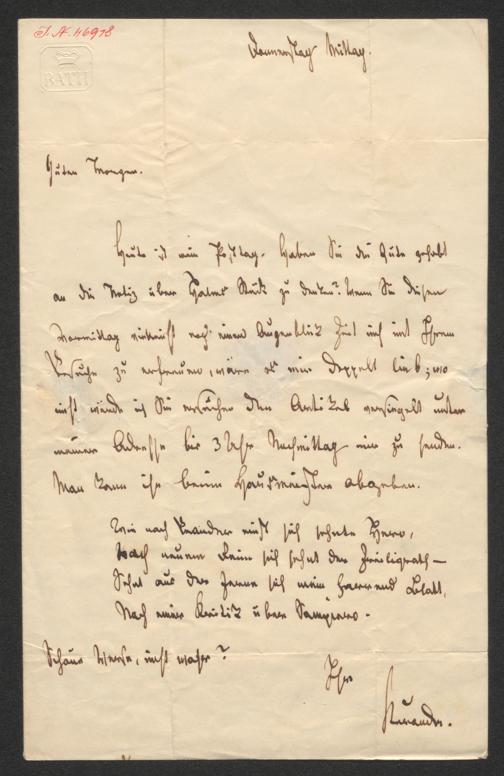 J. N. 46978
BATH
Donnerstag Mittag.
Guten Morgen.
Heute ist mein Posttag. Haben Sie die Güte gehabt
an die Notiz über Halms Stück zu denken? Wenn Sie diesen
Vormittag vielleicht noch einen Augenblick Zeit mich mit Ihrem
Besuche zu erfreuen, wäre es mir doppelt lieb; wo
nicht würde ich Sie ersuchen den Artikel versiegelt unter
meiner Adresse bis 3 Uhr Nachmittag mir zu senden.
Man kann ihn beim Hausmeister abgeben.
Wie nach Leander einst sich sehnte Hero,
Nach neuem Reim sich sehnt der Freiligrath –
Sehnt aus der Ferne sich mein harrend Blatt,
Nach einer Kritik über Sampiero.
Schöne Verse, nicht wahr?
Ihr
Kuranda.